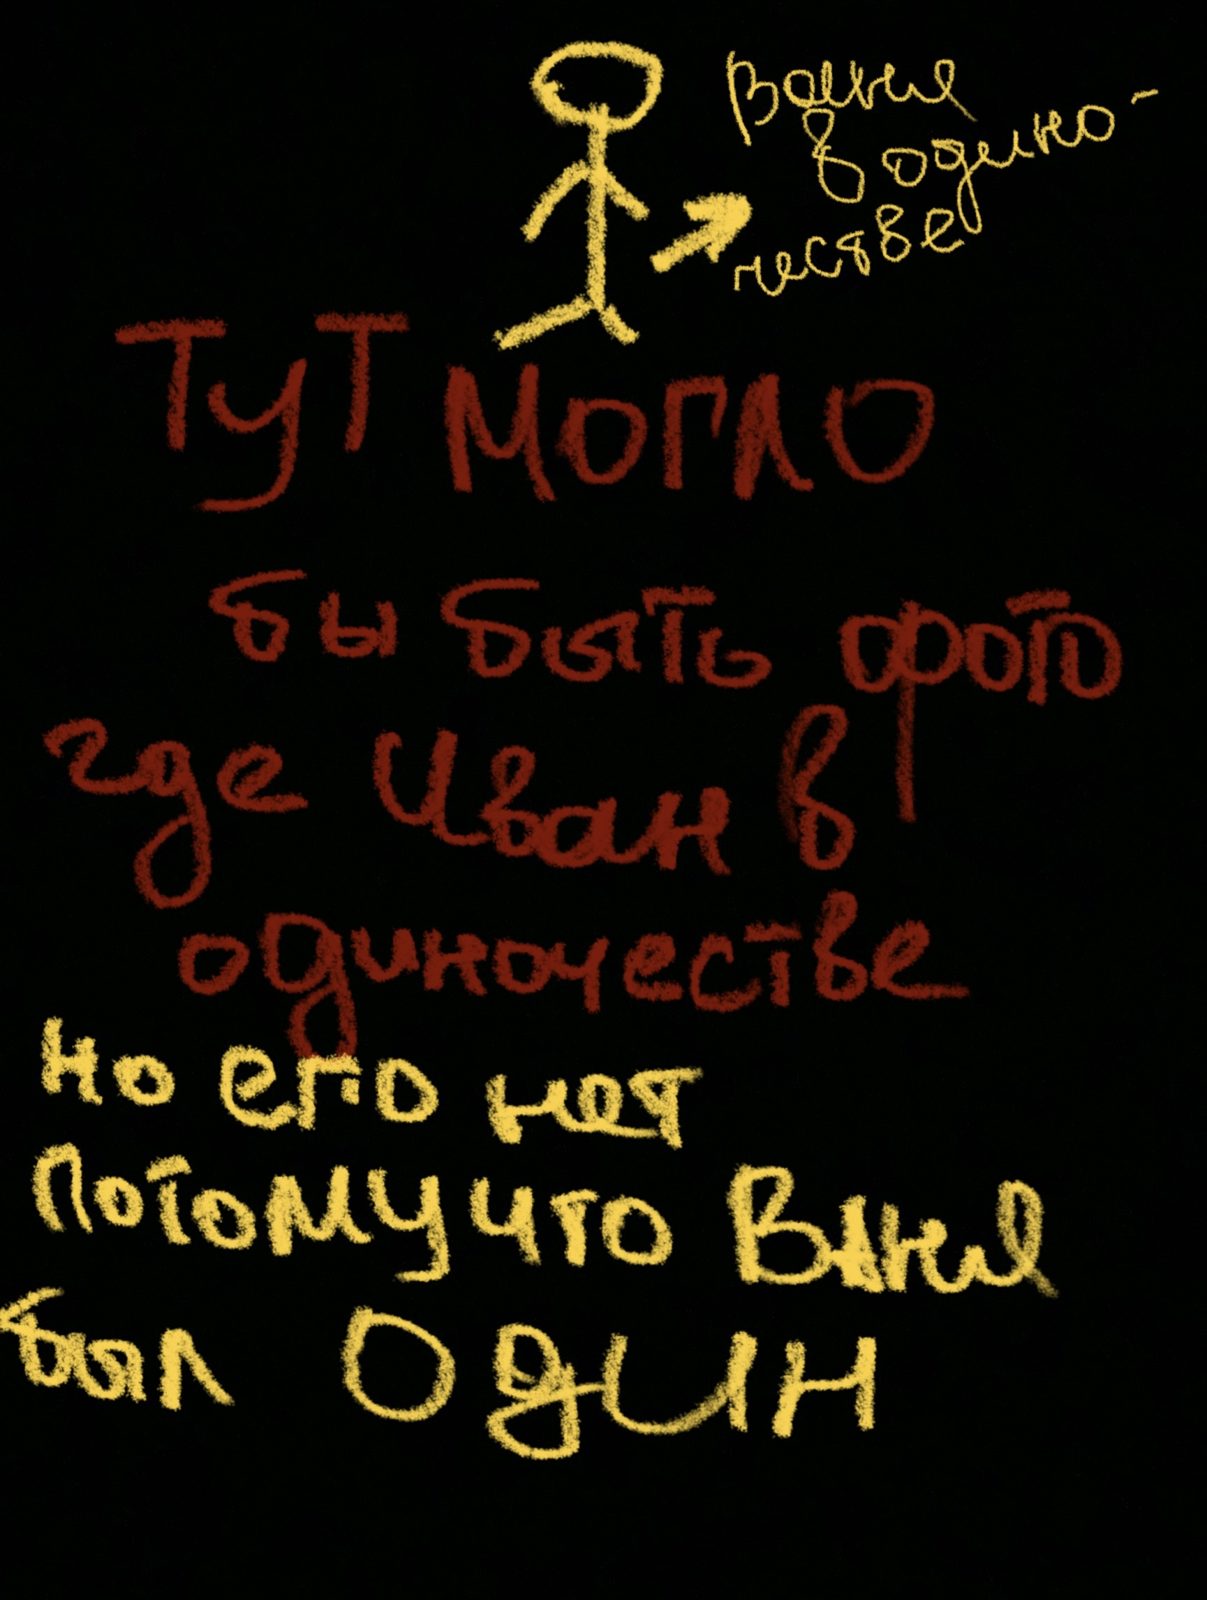 Ваня
в одино-
честве
Тут могло
бы быть фото
где Иван в
одиночестве
но его нет
потому что Ваня
был один